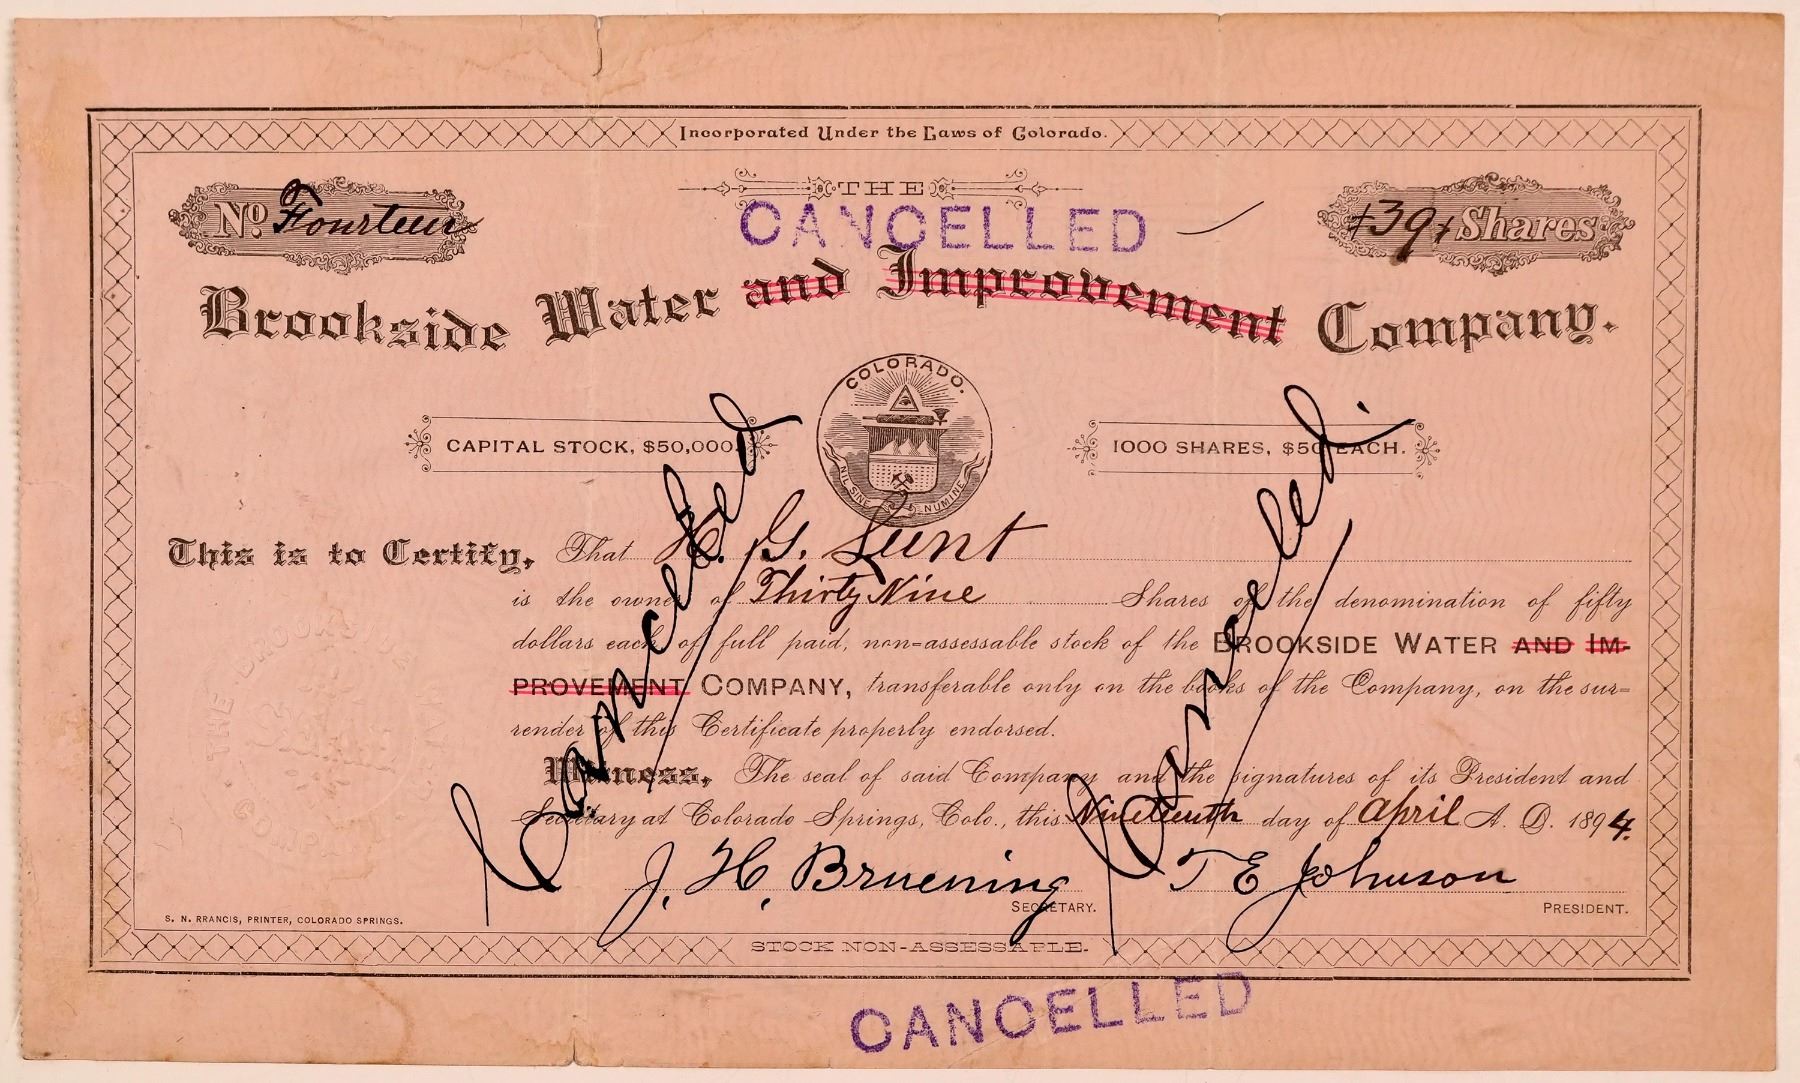 Incorporated Under the Laws of Colorado.
THE
CANCELLED
No. Fourteen
39 Shares
Brookside Water and Improvement Company.
COLORADO.
NIL SINE NUMINE
CAPITAL STOCK, $50,000.
1000 SHARES, $50 EACH.
This is to Certify, That H. G. Lunt
is the owner of Thirty Nine Shares of the denomination of fifty
dollars each of full paid, non=assessable stock of the BROOKSIDE WATER AND IM-
PROVEMENT COMPANY, transferable only on the books of the Company, on the sur=
render of this Certificate properly endorsed.
Witness, The seal of said Company and the signatures of its President and
Secretary at Colorado Springs, Colo., this Nineteenth day of April A. D. 1894.
Cancelled
Cancelled.
THE BROOKSIDE WATER
COMPANY
J. H. Bruening
SECRETARY.
T E Johnson
PRESIDENT.
S. N. RRANCIS, PRINTER, COLORADO SPRINGS.
STOCK NON-ASSESSABLE.
CANCELLED